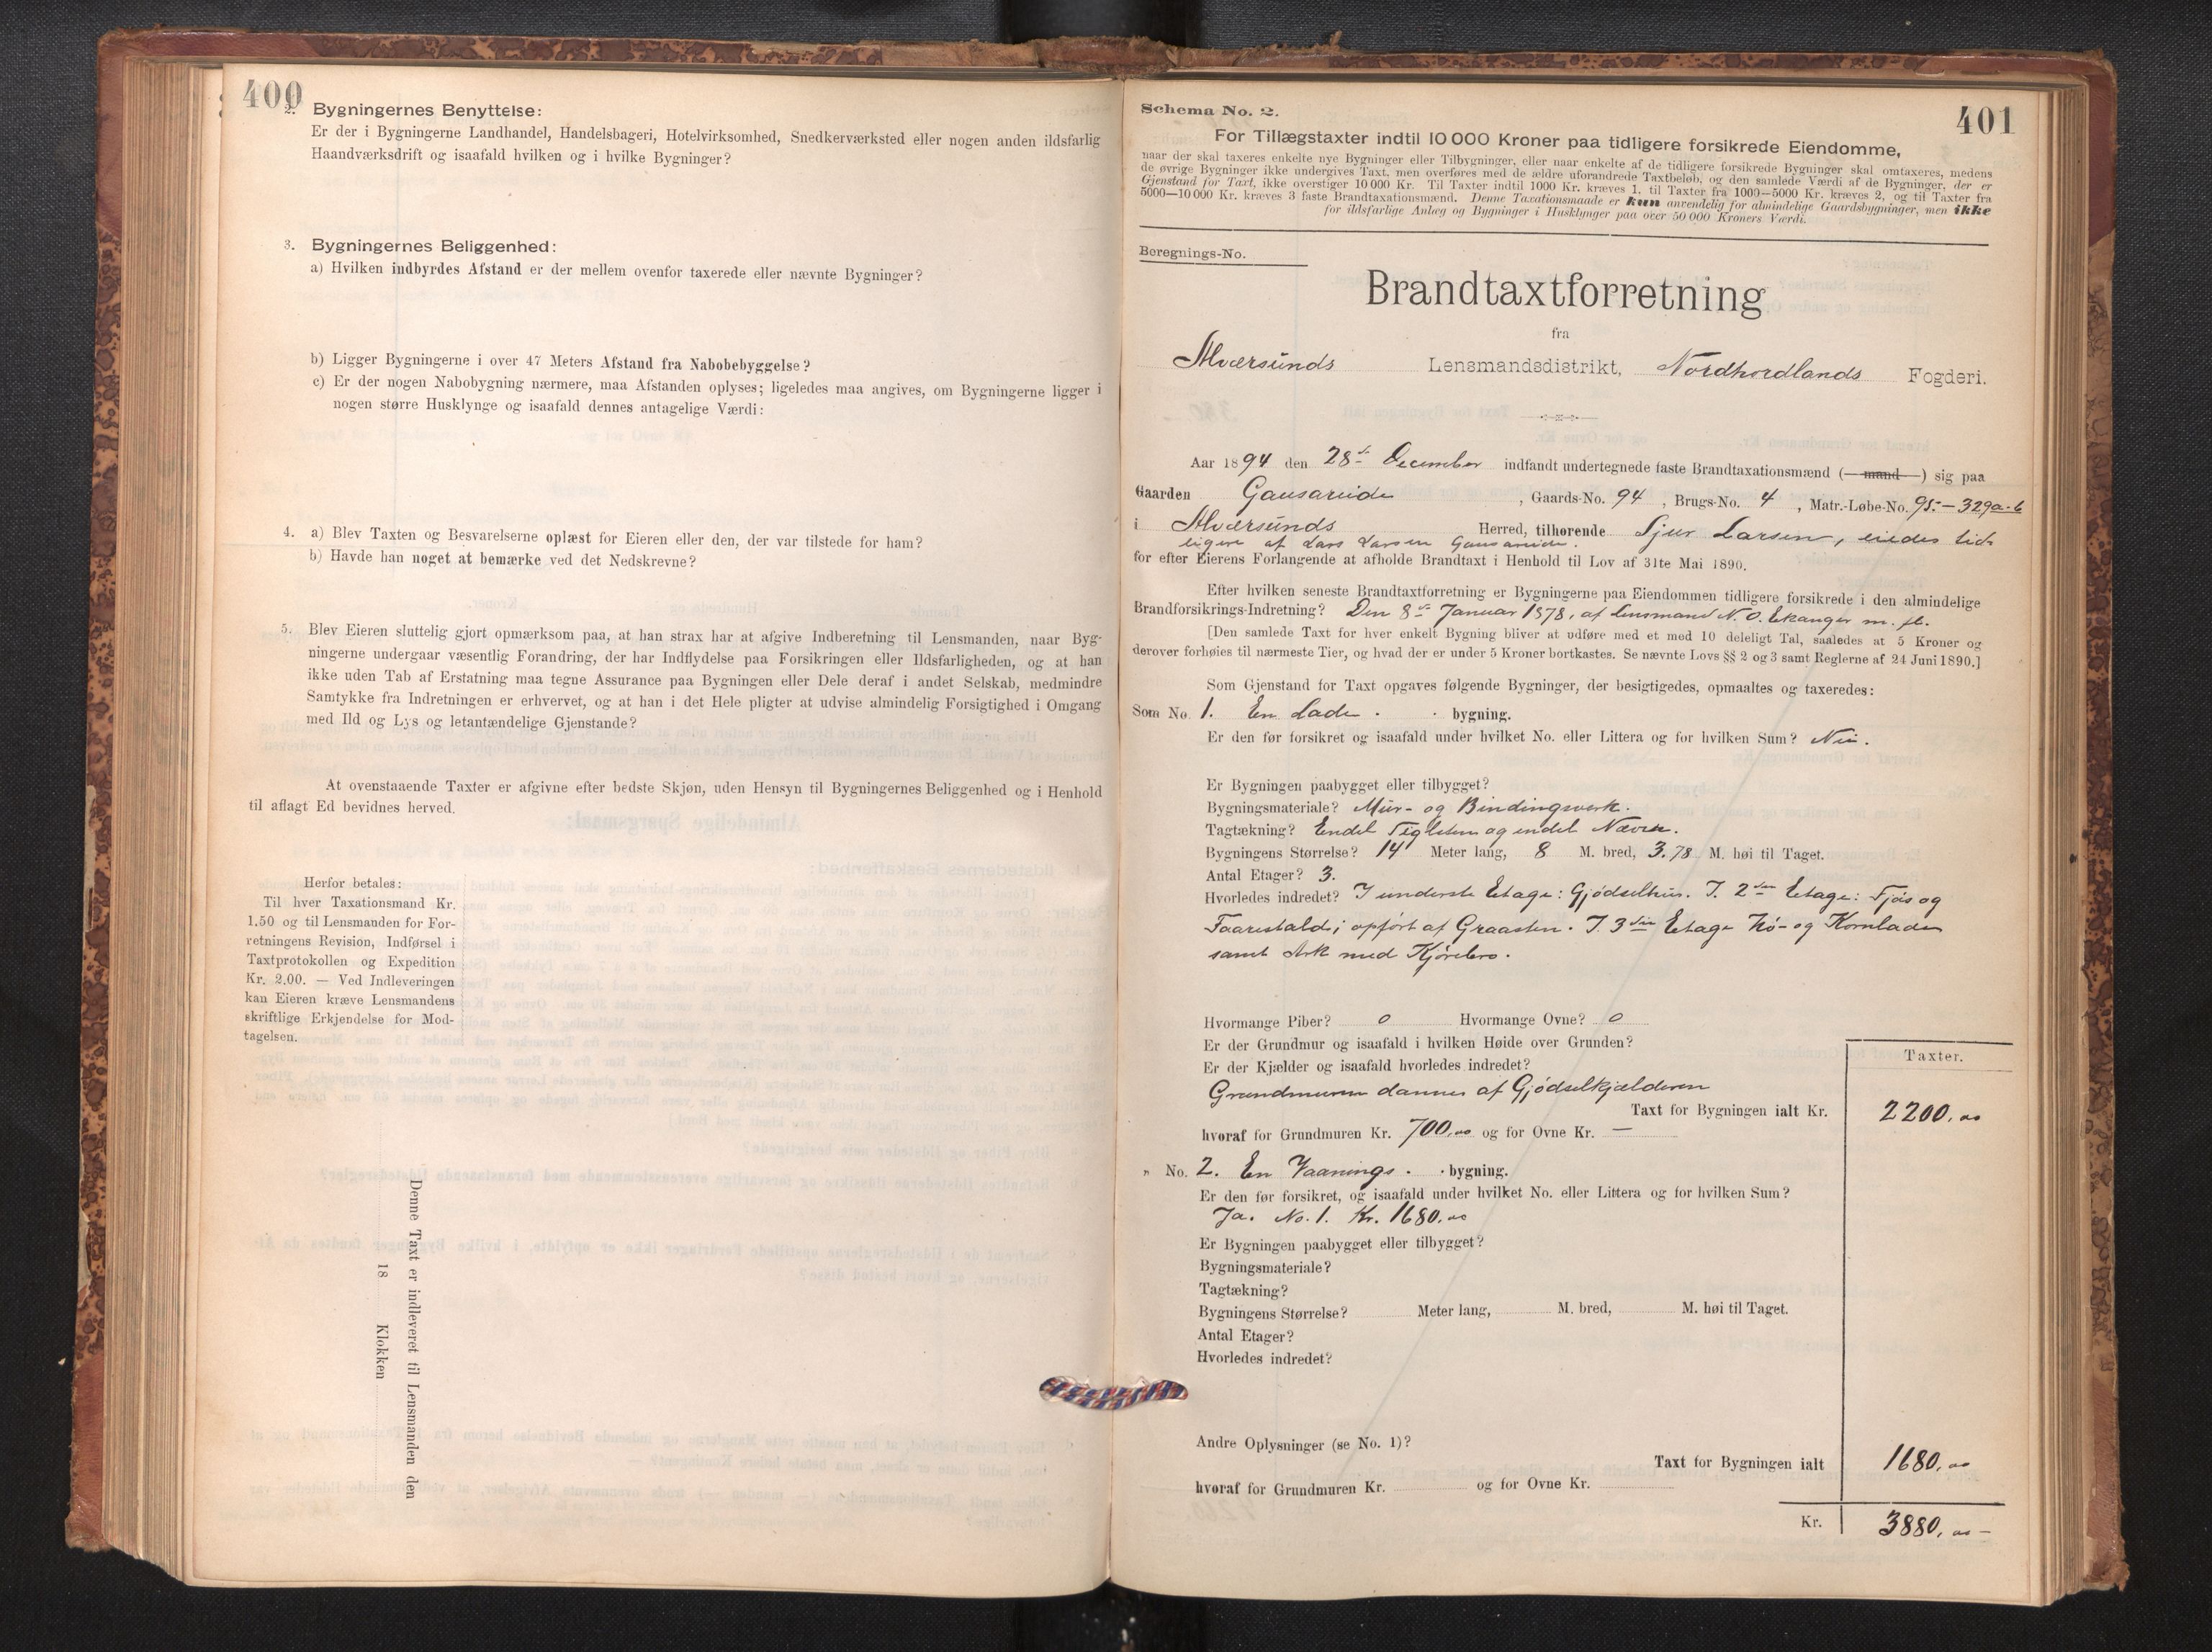 400
2. Bygningernes Benyttelse:
Er der i Bygningerne Landhandel, Handelsbageri, Hotelvirksomhed, Snedkerværksted eller nogen anden ildsfarlig
Haandværksdrift og isaafald hvilken og i hvilke Bygninger?
3. Bygningernes Beliggenhed:
a) Hvilken indbyrdes Afstand er der mellem ovenfor taxerede eller nævnte Bygninger?
b) Ligger Bygningerne i over 47 Meters Afstand fra Nabobebyggelse?
c) Er der nogen Nabobygning nærmere, maa Afstanden oplyses; ligeledes maa angives, om Bygningerne ligger i
nogen større Husklynge og isaafald dennes antagelige Værdi:
4. a) Blev Taxten og Besvarelserne oplæst for Eieren eller den, der var tilstede for ham?
b) Havde han noget at bemærke ved det Nedskrevne?
5. Blev Eieren sluttelig gjort opmærksom paa, at han strax har at afgive Indberetning til Lensmanden, naar Byg-
ningerne undergaar væsentlig Forandring, der har Indflydelse paa Forsikringen eller Ildsfarligheden, og at han
ikke uden Tab af Erstatning maa tegne Assurance paa Bygningen eller Dele deraf i andet Selskab, medmindre
Samtykke fra Indretningen er erhvervet, og at han i det Hele pligter at udvise almindelig Forsigtighed i Omgang
med Ild og Lys og letantændelige Gjenstande?
At ovenstaaende Taxter er afgivne efter bedste Skjøn, uden Hensyn til Bygningernes Beliggenhed og i Henhold
til aflagt Ed bevidnes herved.
Herfor betales:
Til hver Taxationsmand Kr.
1.50 og til Lensmanden for For-
retningens Revision, Indførsel i
Taxtprotokollen og Expedition
Kr. 2.00. — Ved Indleveringen
kan Eieren kræve Lensmandens
skriftlige Erkjendelse for Mod-
tagelsen.
Denne Taxt er indleveret til Lensmanden den
18 Klokken
Schema No. 2.
401
For Tillægstaxter indtil 10 000 Kroner paa tidligere forsikrede Eiendomme,
naar der skal taxeres enkelte nye Bygninger eller Tilbygninger, eller naar enkelte af de tidligere forsikrede Bygninger skal omtaxeres, medens
de øvrige Bygninger ikke undergives Taxt, men overføres med de ældre uforandrede Taxtbeløb, og den samlede Værdi af de Bygninger, der er
Gjenstand for Taxt, ikke overstiger 10 000 Kr. Til Taxter indtil 1000 Kr. kræves 1, til Taxter fra 1000—5000 Kr. kræves 2, og til Taxter fra
5000—10 000 Kr. kræves 3 faste Brandtaxationsmænd. Denne Taxationsmaade er kun anvendelig for almindelige Gaardsbygninger, men ikke
for ildsfarlige Anlæg og Bygninger i Husklynger paa over 50 000 Kroners Værdi.
Beregnings-No.
Brandtaxtforretning
fra
Alværsunds Lensmandsdistrikt, Nordhordlands Fogderi.
Aar 1894 den 28de December indfandt undertegnede faste Brandtaxationsmænd (— mand —) sig paa
Gaarden Gausareide, Gaards-No. 94, Brugs-No. 4, Matr.-Løbe-No. 95 — 329a-b
i Alværsunds Herred, tilhørende Sjur Larsen, eiedes tid
ligere af Lars Larsen Gausareide.
for efter Eierens Forlangende at afholde Brandtaxt i Henhold til Lov af 31te Mai 1890.
Efter hvilken seneste Brandtaxtforretning er Bygningerne paa Eiendommen tidligere forsikrede i den almindelige
Brandforsikrings-Indretning? Den 8de Januar 1878, af Lensmand N. O. Ekanger m. fl.
[Den samlede Taxt for hver enkelt Bygning bliver at udføre med et med 10 deleligt Tal, saaledes at 5 Kroner og
derover forhøies til nærmeste Tier, og hvad der er under 5 Kroner bortkastes. Se nævnte Lovs §§ 2 og 3 samt Reglerne af 24 Juni 1890.]
Som Gjenstand for Taxt opgaves følgende Bygninger, der besigtigedes, opmaaltes og taxeredes:
Som No. 1. En Lade bygning.
Er den før forsikret og isaafald under hvilket No. eller Littera og for hvilken Sum? Nei.
Er Bygningen paabygget eller tilbygget?
Bygningsmateriale? Mur- og Bindingsverk.
Tagtækning? Endel Teglsten og endel Næver.
Bygningens Størrelse? 14 Meter lang, 8 M. bred, 3.78 M. høi til Taget.
Antal Etager? 3.
Hvorledes indredet? I underste Etage: Gjødselhus. I. 2den Etage: Fjøs og
Faarestald; opført af Graasten. I. 3die Etage Hø- og Kornlade
samt Ark med Kjørebro.
Hvormange Piber? 0 Hvormange Ovne? 0
Er der Grundmur og isaafald i hvilken Høide over Grunden?
Er der Kjælder og isaafald hvorledes indredet?
Grundmuren dannes af Gjødselkjælderen
Taxter.
Taxt for Bygningen ialt Kr. 2200,00
hvoraf for Grundmuren Kr. 700,00 og for Ovne Kr. —
" No. 2. En Vaanings bygning.
Er den før forsikret, og isaafald under hvilket No. eller Littera og for hvilken Sum?
Ja. No. 1. Kr. 1680,00
Er Bygningen paabygget eller tilbygget?
Bygningsmateriale?
Tagtækning?
Bygningens Størrelse? Meter lang, M. bred, M. høi til Taget.
Antal Etager?
Hvorledes indredet?
Andre Oplysninger (se No. 1)?
Taxt for Bygningen ialt 1680,00
hvoraf for Grundmuren Kr. og for Ovne Kr.
Kr. 3880,00 —